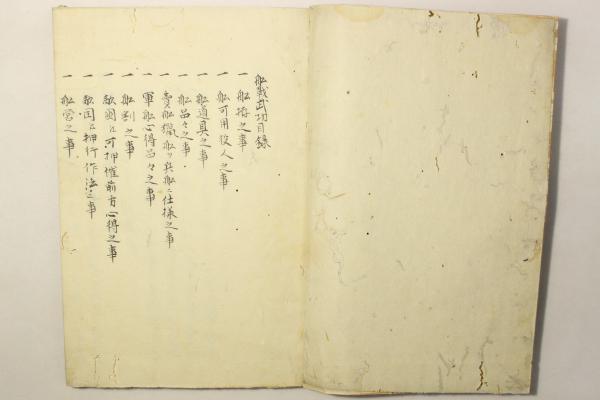 船戦武功目録
一 船揃之事
一 船可用役人之事
一 船道具之事
一 船品々之事
一 賣船獵船ヲ兵船ニ仕様之事
一 軍船心得品々之事
一 船割之事
一 敵國江可押催前方心得之事
一 敵国江押行作法之事
一 船営之事